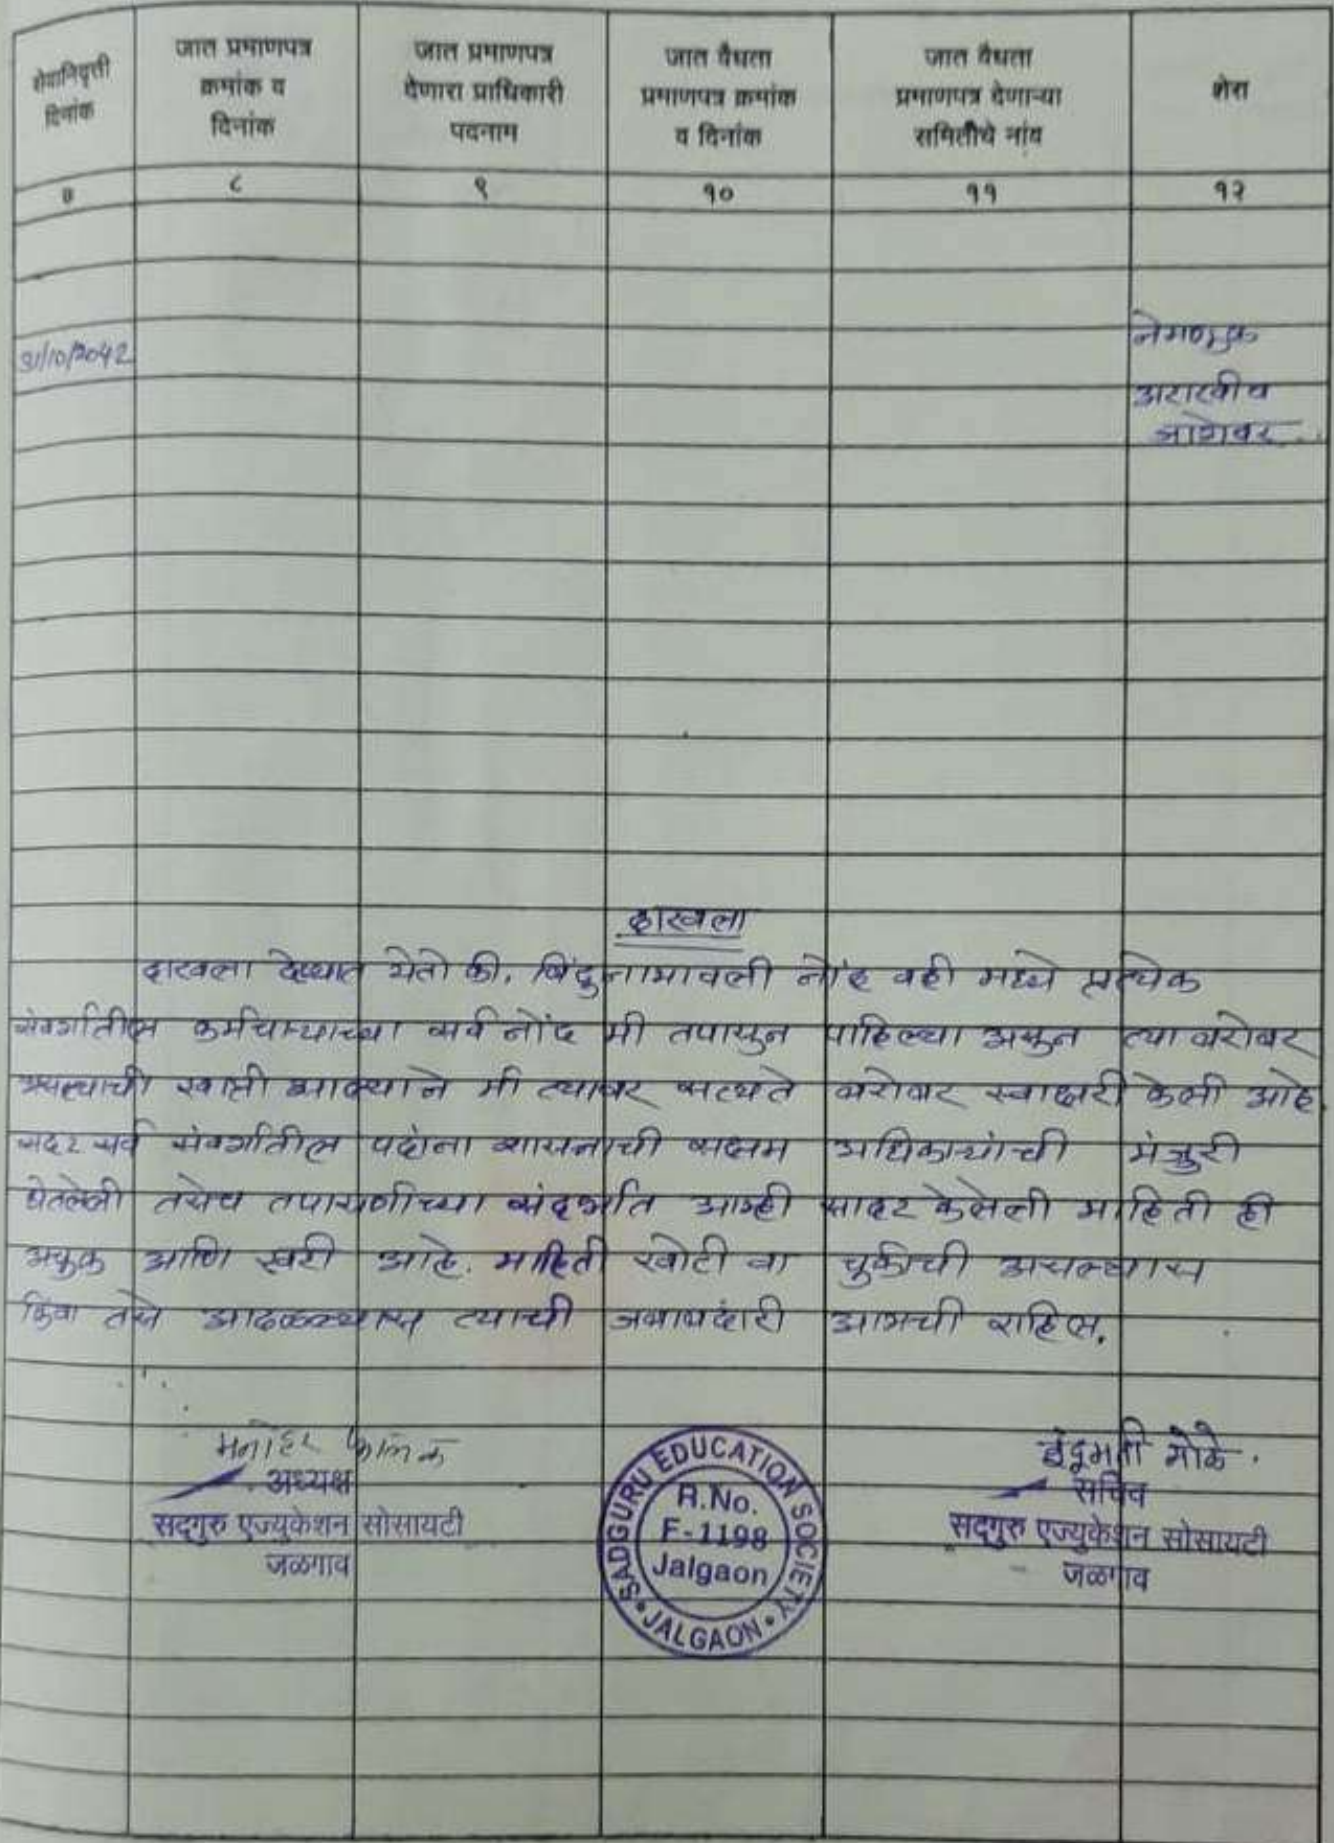 सेवानिवृत्ती दिनांक
जात प्रमाणपत्र क्रमांक व दिनांक
जात प्रमाणपत्र देणारा प्राधिकारी पदनाम
जात वैधता प्रमाणपत्र क्रमांक व दिनांक
जात वैधता प्रमाणपत्र देणाऱ्या समितीचे नांव
शेरा
७ ८ ९ १० ११ १२
31/10/2042
नेमणूक
अराखीव
जागेवर
दाखला
दाखला देण्यात येतो की, बिंदुनामावली नोंद वही मध्ये प्रत्येक
संवर्गातील कर्मचाऱ्याच्या सर्व नोंद मी तपासुन पाहिल्या असुन त्या बरोबर
असल्याची खात्री झाल्याने मी त्यावर सत्यते बरोबर स्वाक्षरी केली आहे.
सदर सर्व संवर्गातील पदांना शासनाची सक्षम अधिकाऱ्यांची मंजुरी
घेतलेली तसेच तपासणीच्या संदर्भात आम्ही सादर केलेली माहिती ही
अचुक आणि खरी आहे. माहिती खोटी वा चुकीची असल्यास
किंवा तसे आढळल्यास त्याची जबाबदारी आमची राहिल.
मनोहर
अध्यक्ष
सद्गुरु एज्युकेशन सोसायटी
जळगाव
SADGURU EDUCATION SOCIETY
R.No.
F-1198
Jalgaon
JALGAON
इंदुमती मोळे.
सचिव
सद्गुरु एज्युकेशन सोसायटी
जळगाव